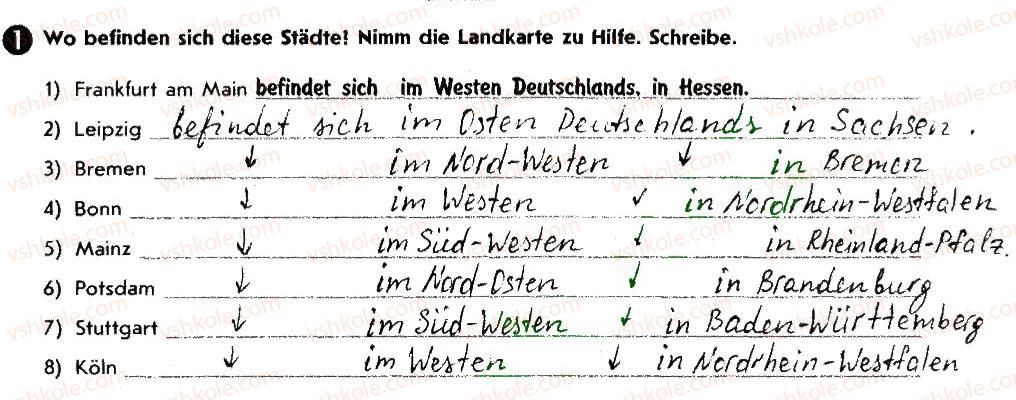 1 Wo befinden sich diese Städte? Nimm die Landkarte zu Hilfe. Schreibe.
1) Frankfurt am Main befindet sich im Westen Deutschlands, in Hessen.
2) Leipzig befindet sich im Osten Deutschlands in Sachsen.
3) Bremen ↓ im Nord-Westen ↓ in Bremen
4) Bonn ↓ im Westen ↓ in Nordrhein-Westfalen
5) Mainz ↓ im Süd-Westen ↓ in Rheinland-Pfalz.
6) Potsdam ↓ im Nord-Osten ↓ in Brandenburg
7) Stuttgart ↓ im Süd-Westen ↓ in Baden-Württemberg
8) Köln ↓ im Westen ↓ in Nordrhein-Westfalen